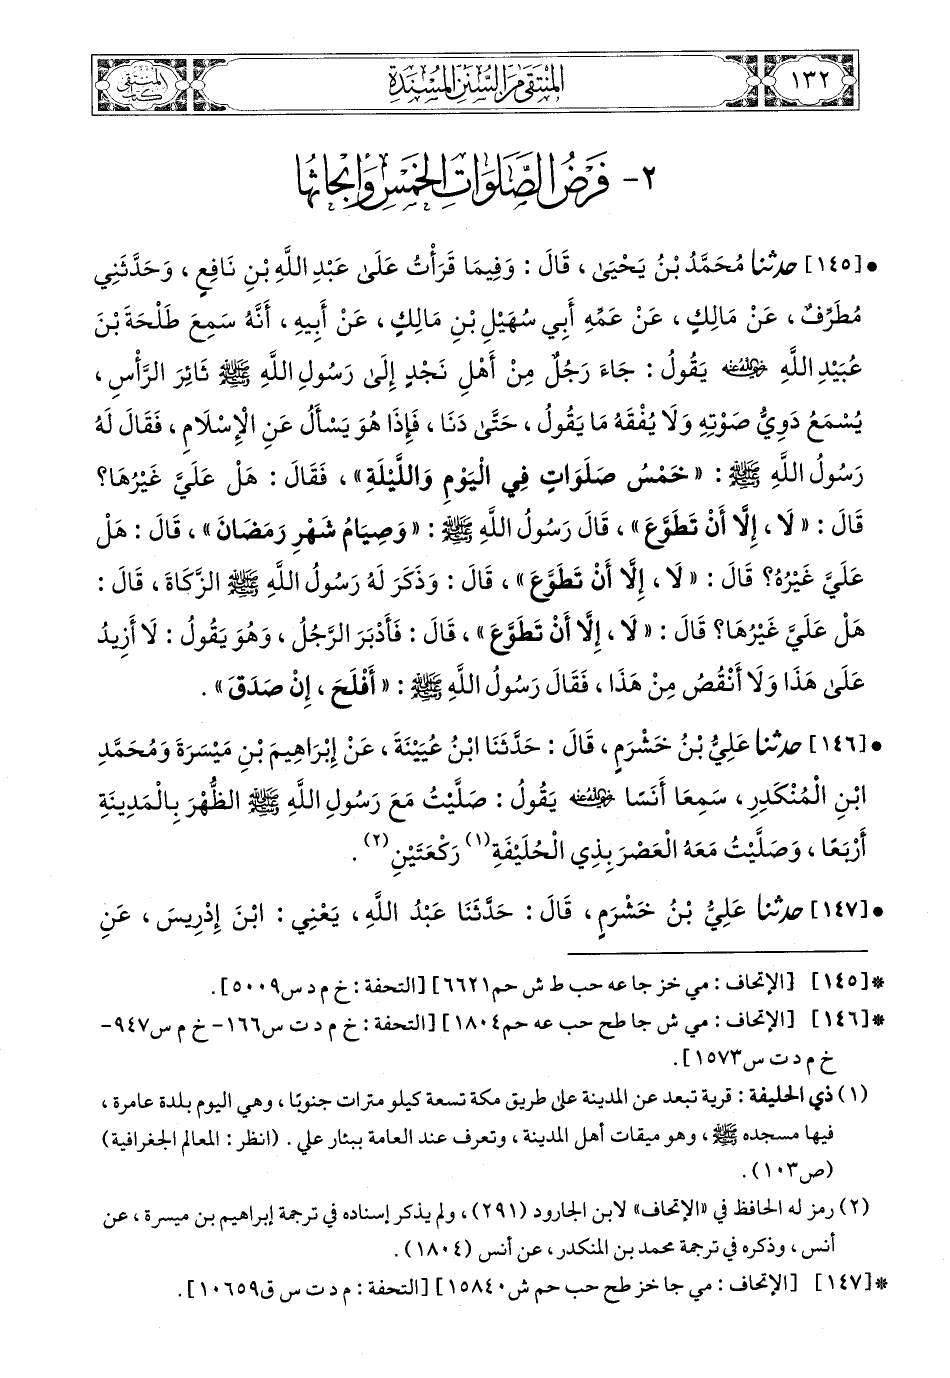 ١٣٢
المنتقى من السنن المسندة
كتاب المنتقى
٢- فَرْضُ الصَّلَوَاتِ الخَمْسِ وَأَبْحَاثُهَا
• [١٤٥] حدثنا مُحَمَّدُ بْنُ يَحْيَىٰ ، قَالَ : وَفِيمَا قَرَأْتُ عَلَىٰ عَبْدِ اللَّهِ بْنِ نَافِعٍ ، وَحَدَّثَنِي
مُطَرِّفٌ ، عَنْ مَالِكٍ ، عَنْ عَمِّهِ أَبِي سُهَيْلِ بْنِ مَالِكٍ ، عَنْ أَبِيهِ ، أَنَّهُ سَمِعَ طَلْحَةَ بْنَ
عُبَيْدِ اللَّهِ رضي الله عنه يَقُولُ : جَاءَ رَجُلٌ مِنْ أَهْلِ نَجْدٍ إِلَىٰ رَسُولِ اللَّهِ ﷺ ثَائِرَ الرَّأْسِ ،
يُسْمَعُ دَوِيُّ صَوْتِهِ وَلَا يُفْقَهُ مَا يَقُولُ ، حَتَّىٰ دَنَا ، فَإِذَا هُوَ يَسْأَلُ عَنِ الْإِسْلَامِ ، فَقَالَ لَهُ
رَسُولُ اللَّهِ ﷺ : «خَمْسُ صَلَوَاتٍ فِي الْيَوْمِ وَاللَّيْلَةِ» ، فَقَالَ : هَلْ عَلَيَّ غَيْرُهَا؟
قَالَ : «لَا ، إِلَّا أَنْ تَطَوَّعَ» ، قَالَ رَسُولُ اللَّهِ ﷺ : «وَصِيَامُ شَهْرِ رَمَضَانَ» ، قَالَ : هَلْ
عَلَيَّ غَيْرُهُ؟ قَالَ : «لَا ، إِلَّا أَنْ تَطَوَّعَ» ، قَالَ : وَذَكَرَ لَهُ رَسُولُ اللَّهِ ﷺ الزَّكَاةَ ، قَالَ :
هَلْ عَلَيَّ غَيْرُهَا؟ قَالَ : «لَا ، إِلَّا أَنْ تَطَوَّعَ» ، قَالَ : فَأَدْبَرَ الرَّجُلُ ، وَهُوَ يَقُولُ : لَا أَزِيدُ
عَلَىٰ هَذَا وَلَا أَنْقُصُ مِنْ هَذَا ، فَقَالَ رَسُولُ اللَّهِ ﷺ : «أَفْلَحَ ، إِنْ صَدَقَ» .
• [١٤٦] حدثنا عَلِيُّ بْنُ خَشْرَمٍ ، قَالَ : حَدَّثَنَا ابْنُ عُيَيْنَةَ ، عَنْ إِبْرَاهِيمَ بْنِ مَيْسَرَةَ وَمُحَمَّدِ
ابْنِ الْمُنْكَدِرِ ، سَمِعَا أَنَسًا رضي الله عنه يَقُولُ : صَلَّيْتُ مَعَ رَسُولِ اللَّهِ ﷺ الظُّهْرَ بِالْمَدِينَةِ
أَرْبَعًا ، وَصَلَّيْتُ مَعَهُ الْعَصْرَ بِذِي الْحُلَيْفَةِ(١) رَكْعَتَيْنِ(٢) .
• [١٤٧] حدثنا عَلِيُّ بْنُ خَشْرَمٍ ، قَالَ : حَدَّثَنَا عَبْدُ اللَّهِ ، يَعْنِي : ابْنَ إِدْرِيسَ ، عَنِ
* [١٤٥] [الإتحاف : مي خز جا عه حب ط ش حم ٦٦٢١] [التحفة : خ م د س ٥٠٠٩] .
* [١٤٦] [الإتحاف : مي ش جا طح حب عه حم ١٨٠٤] [التحفة : خ م د ت س ١٦٦- خ م س ٩٤٧-
خ م د ت س ١٥٧٣] .
(١) ذي الحليفة : قرية تبعد عن المدينة على طريق مكة تسعة كيلو مترات جنوبًا ، وهي اليوم بلدة عامرة ،
فيها مسجده ﷺ ، وهو ميقات أهل المدينة ، وتعرف عند العامة ببئار علي . (انظر : المعالم الجغرافية)
(ص ١٠٣) .
(٢) رمز له الحافظ في «الإتحاف» لابن الجارود (٢٩١) ، ولم يذكر إسناده في ترجمة إبراهيم بن ميسرة ، عن
أنس ، وذكره في ترجمة محمد بن المنكدر ، عن أنس (١٨٠٤) .
* [١٤٧] [الإتحاف : مي جا خز طح حب حم ش ١٥٨٤٠] [التحفة : م د ت س ق ١٠٦٥٩] .